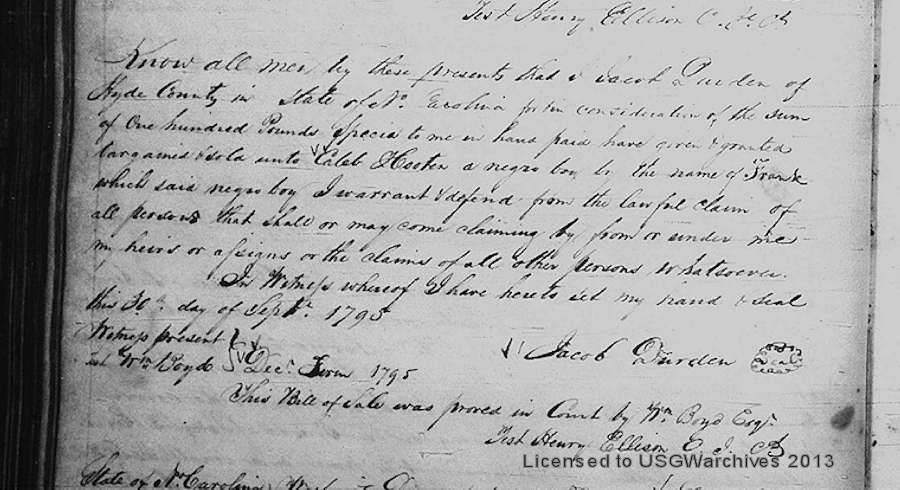 Test Henry Ellison C.
Know all men by these presents that I Jacob Durden of
Hyde County in State of No. Carolina for & in consideration of the sum
of One hundred Pounds Specia to me in hand paid have given & granted
bargained & sold unto Caleb Hooten a negro boy by the name of Frank
which said negro boy I warrant & defend from the lawful claim of
all persons that shall or may come claiming by from or under me
my heirs or assigns or the claims of all other persons whatsoever.
In Witness whereof I have hereto set my hand & Seal
this 30th day of Septr. 1795
Witness present
Jacob Durden Seal
Test Wm Boyd Decr. Term 1795
This Bill of Sale was proved in Court by Wm Boyd Esqr.
Test Henry Ellison C.
Licensed to USGWarchives 2013
State of No. Carolina